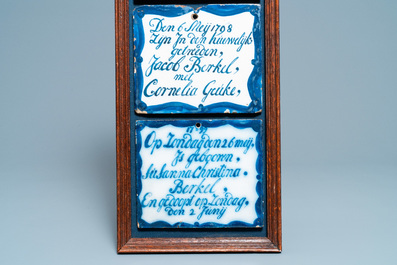 Den 6 Meij 1798
Zijn In den huwelijk
getreden,
Jacob Berkel,
met
Cornelia Geeke,
Op Zondag den 26 meij.
Is gebooren.
Susanna Christina.
Berkel.
En gedoopt op Zondag.
den 2 Junij